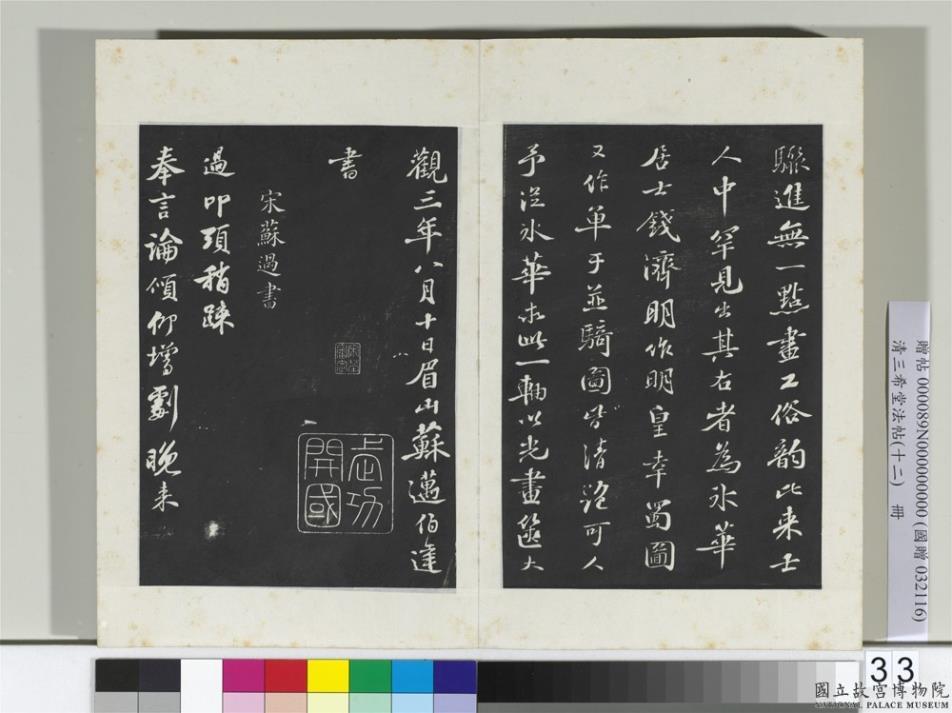 驟進無一點畫工俗韵比来士
人中罕見出其右者為冰華
居士錢濟明作明皇幸蜀圖
又作單于並騎圖皆清絕可人
予從冰華求此一軸以光畫篋大
觀三年八月十日眉山蘇邁伯達
書
武功
開國
宋蘇過書
過叩頭稍踈
奉言論傾仰增劇晚来
贈帖 000089N000000000 (國贈 032116)
清三希堂法帖(十二) 冊
33
國立故宮博物院
NATIONAL PALACE MUSEUM